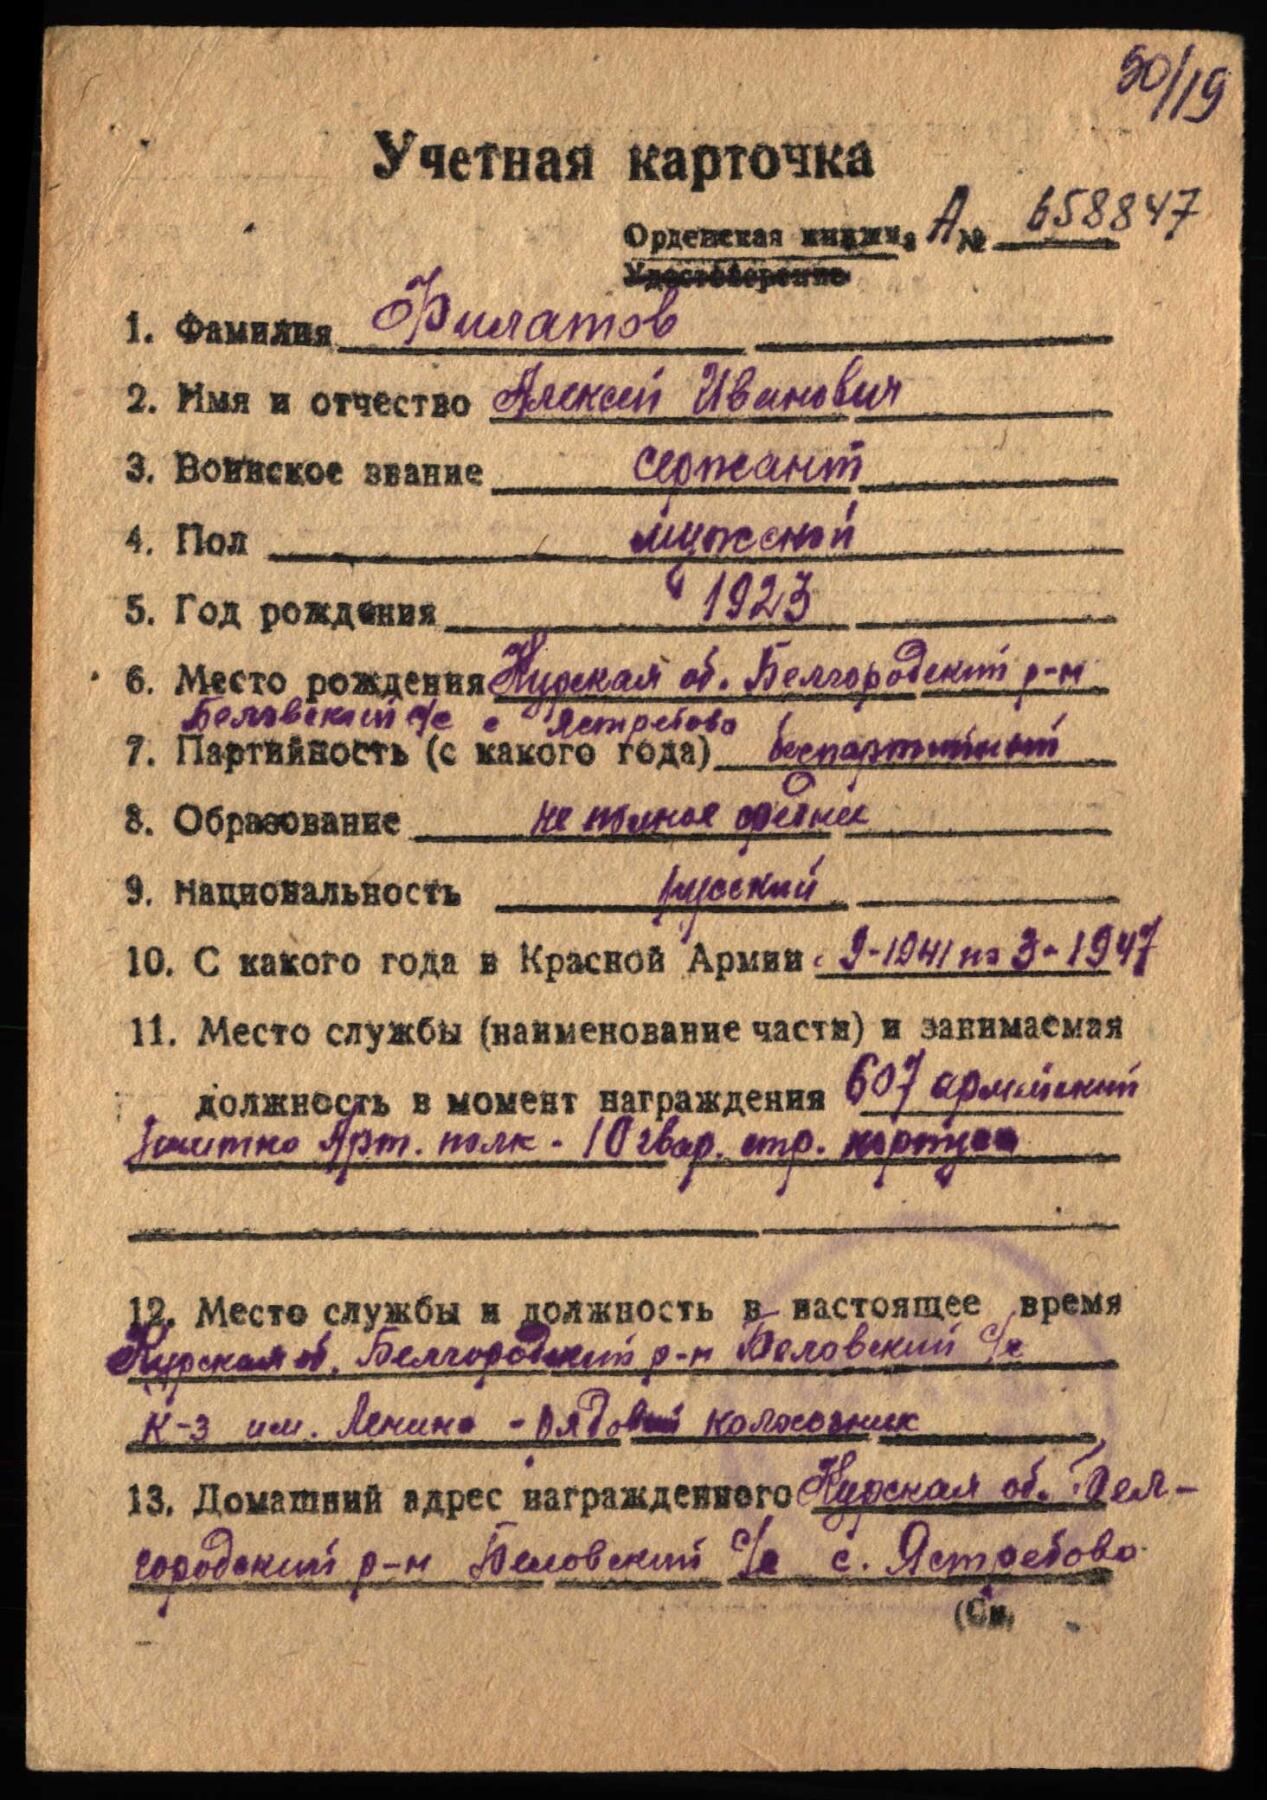 50/19
Учетная карточка
Орденская книжка А № 658847
Удостоверение
1. Фамилия Филатов
2. Имя и отчество Алексей Иванович
3. Воинское звание сержант
4. Пол мужской
5. Год рождения 1923
6. Место рождения Курская об. Белгородский р-н
Беловский с/с с Ястребово
7. Партийность (с какого года) беспартийный
8. Образование не полное среднее
9. Национальность русский
10. С какого года в Красной Армии с 9-1941 по 3-1947
11. Место службы (наименование части) и занимаемая
должность в момент награждения 607 армейский
Зенитно Арт. полк - 10 гвар. стр. корпуса
12. Место службы и должность в настоящее время
Курская об. Белгородский р-н Беловский с/с
к-з им. Ленина - рядовой колхозник
13. Домашний адрес награжденного Курская об. Бел-
городский р-н Беловский с/с с. Ястребово
(См.